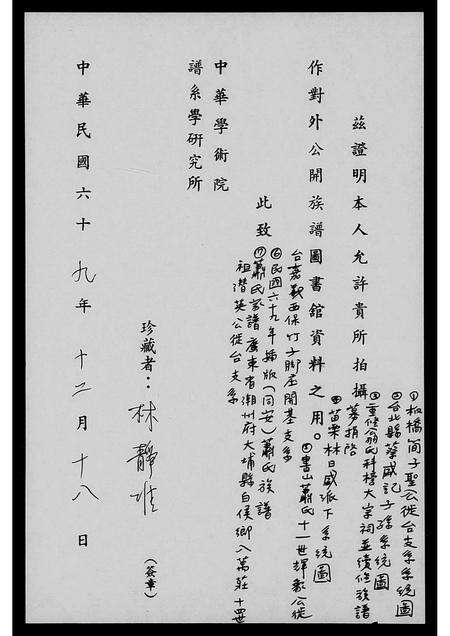 茲證明本人允許貴所拍攝
①板橋簡子聖公徙台支系系統圖
②台北縣蔡咸記子孫系統圖
③重修翁氏科榜大宗祠並續修族譜募捐啓
④苗栗林日盛派下系統圖
⑤書山蕭氏十一世輝彩公徙
台嘉義西保竹子脚庄開基支系
⑥民國六十九年新版(同安)蕭氏族譜
⑦蕭氏家譜廣東省潮州府大埔縣白侯鄉八萬莊十四世
祖潛英公徙台支系
作對外公開族譜圖書館資料之用。
此致
中華學術院
譜系學研究所
珍藏者:林靜
(簽章)
中華民國六十九年十二月十八日